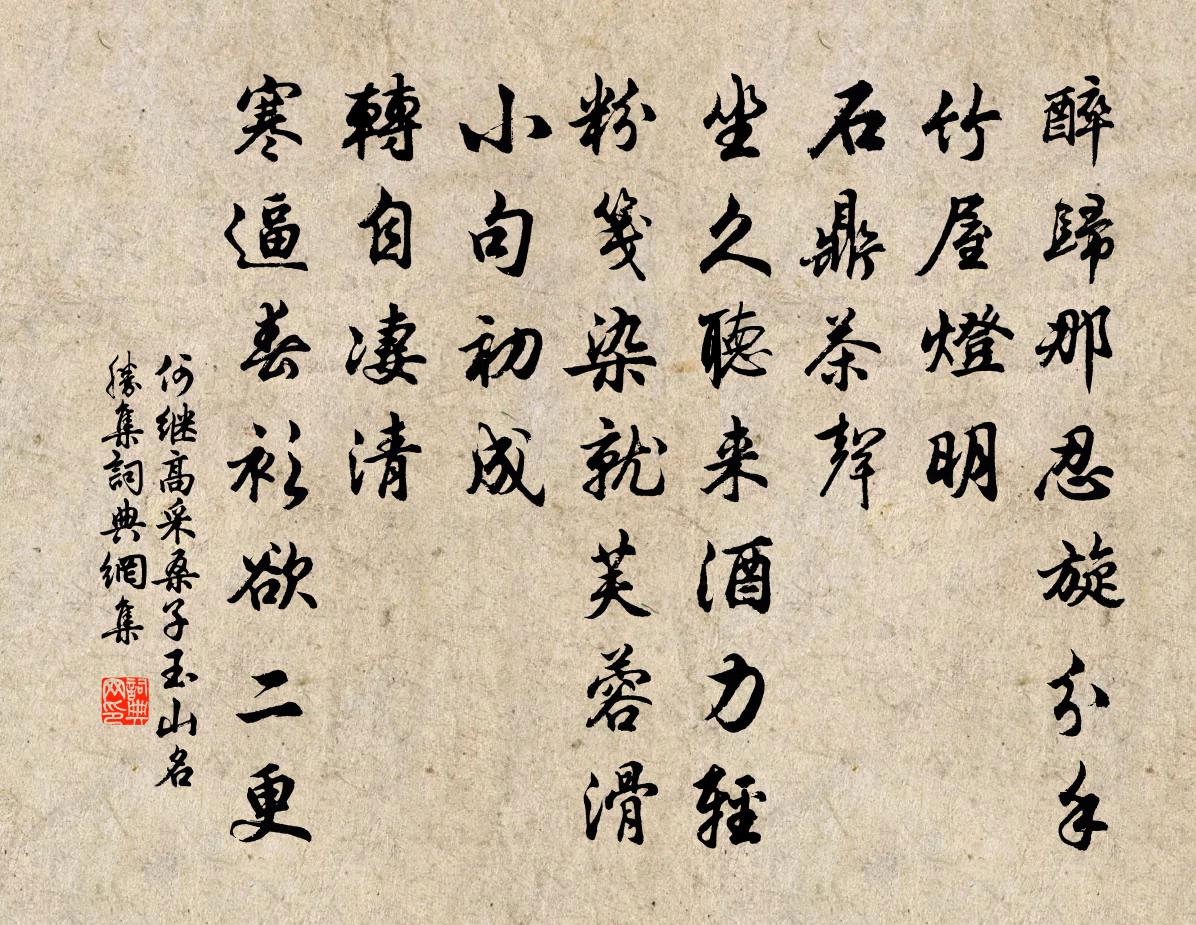 醉歸那忍旋分手
竹屋燈明
石鼎茶聲
坐久聽来酒力輕
粉箋染就芙蓉滑
小句初成
轉自凄清
寒逼春衫欲二更
何继高采桑子玉山名
勝集詞典網集
詞典網印